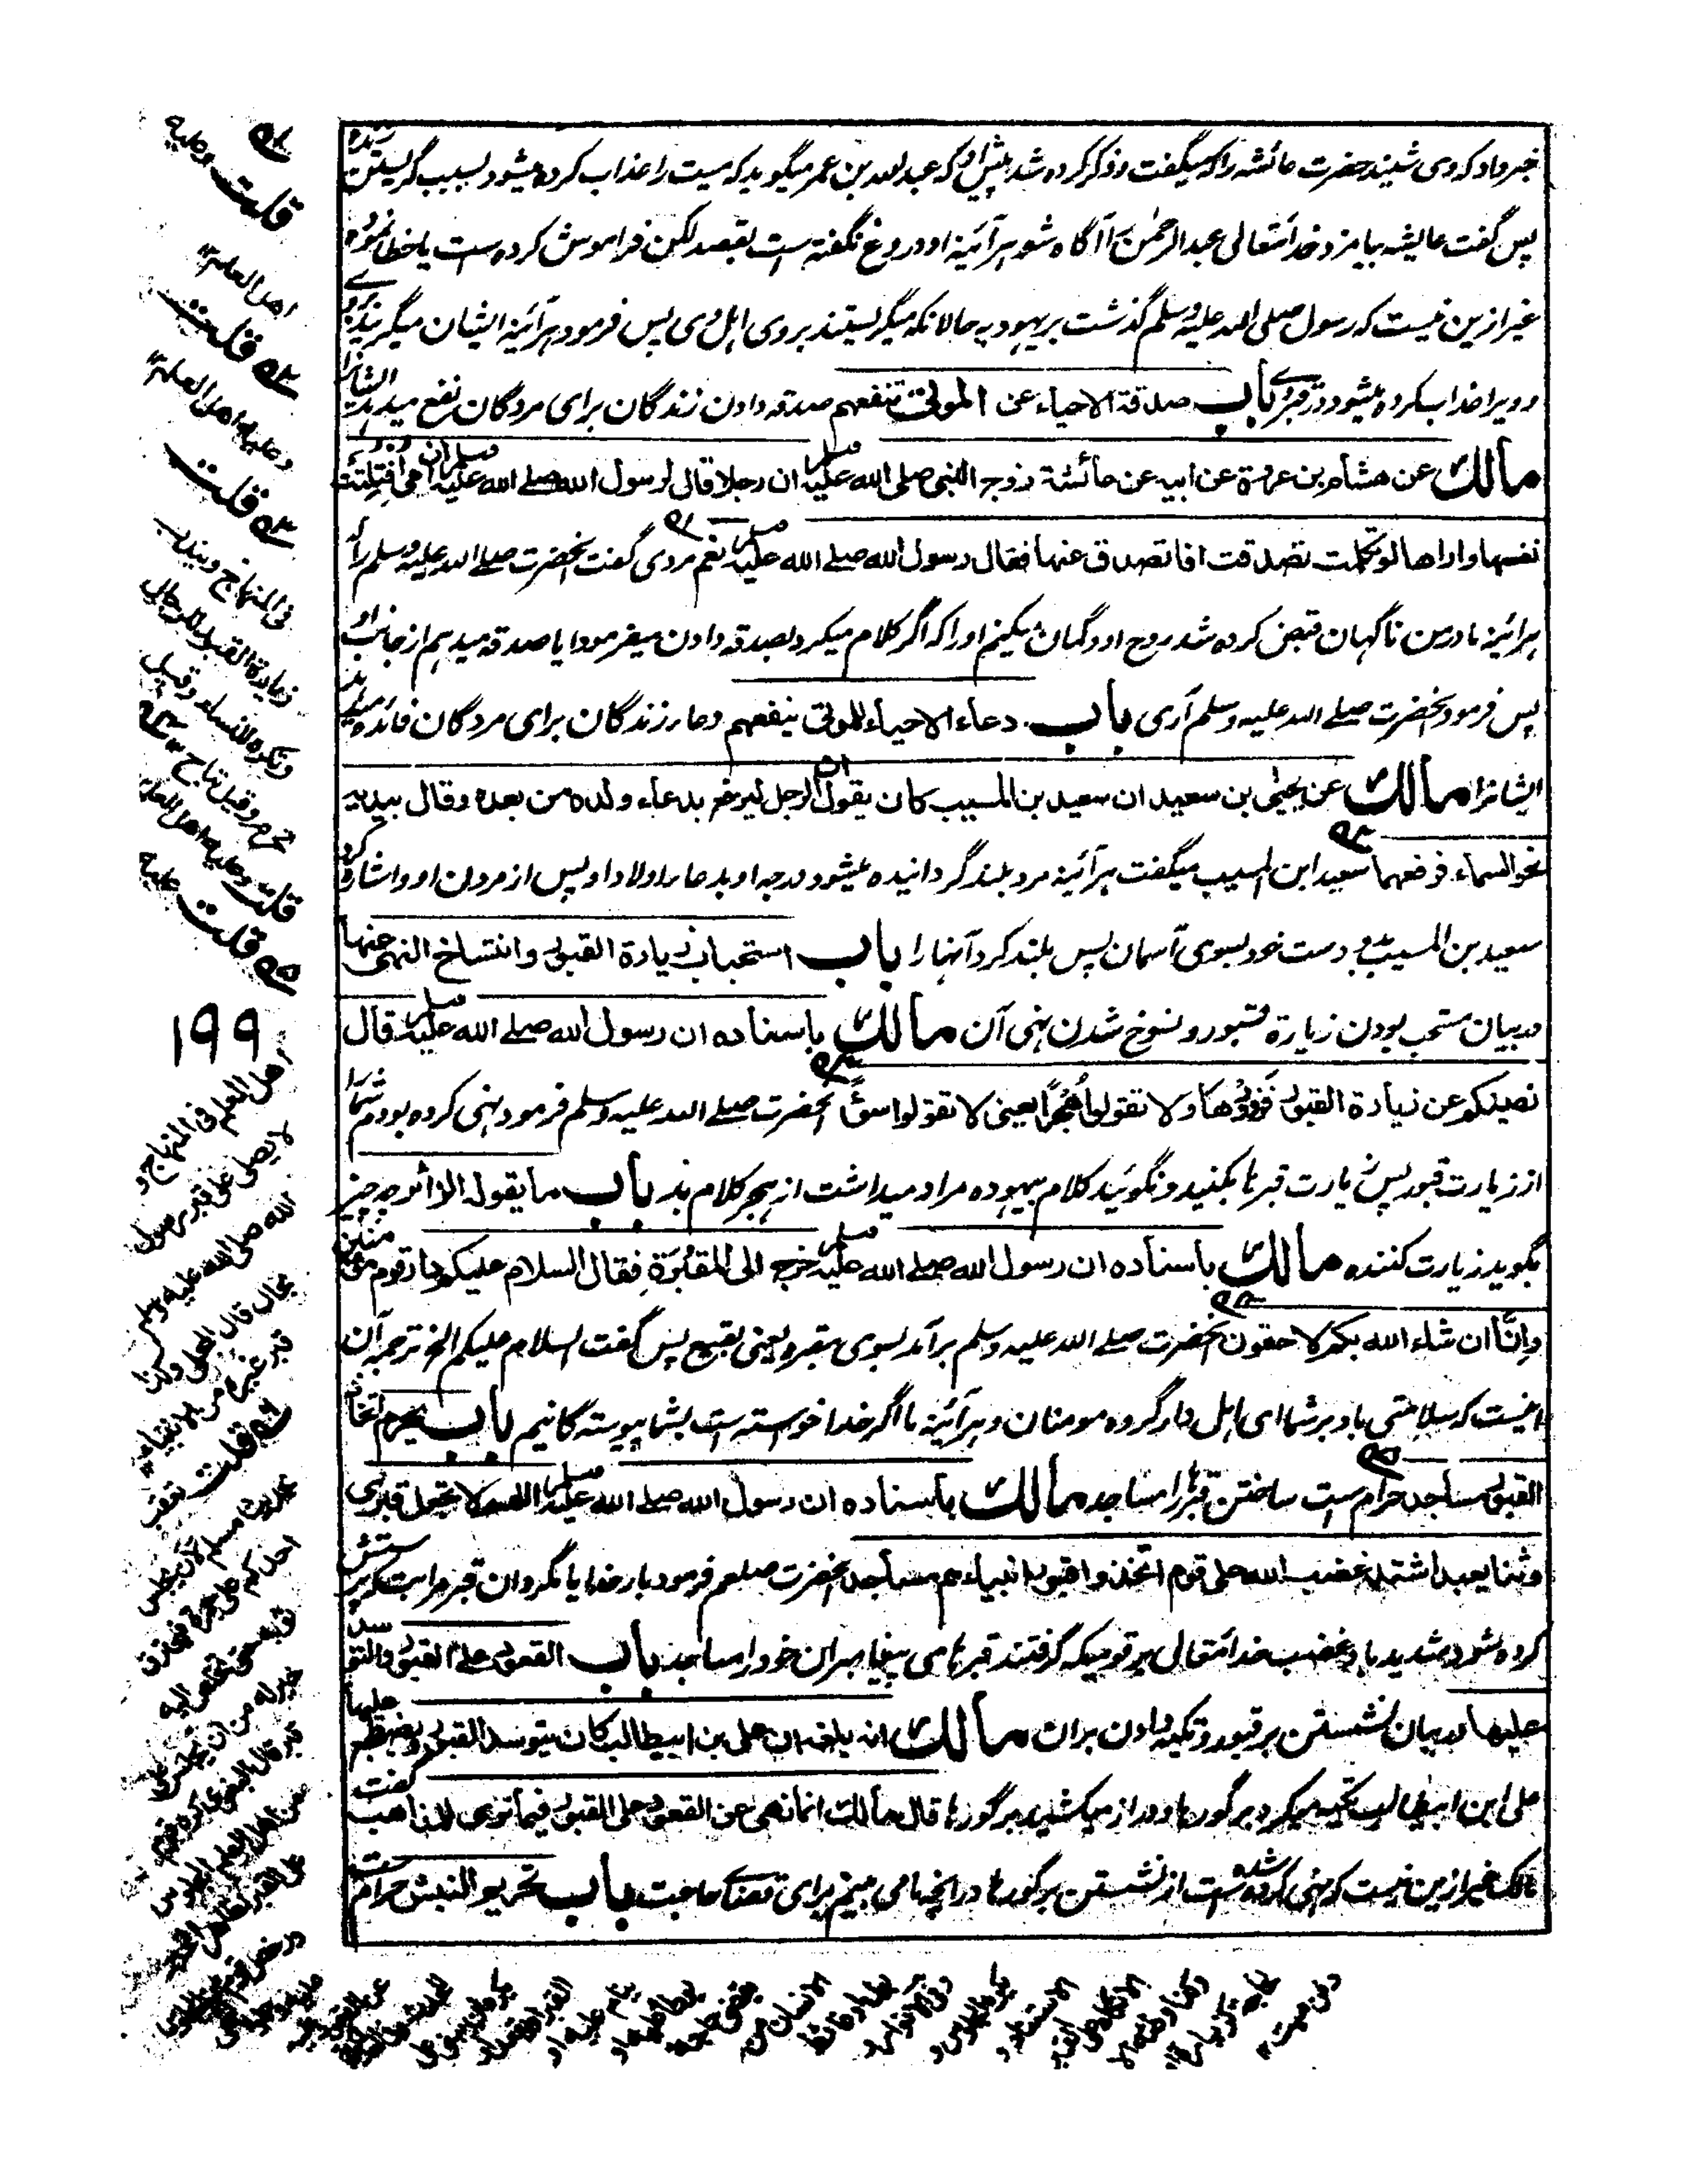 خبر داد که وی شنید حضرت عائشه را که میگفت و ذکر کرده شد پیش او که عبد الله بن عمر میگوید که میت را عذاب کرده میشود بسبب گریستن زنده
پس گفت عایشه بیامرزد خدا تعالی عبد الرحمن را آگاه شو هر آئینه او دروغ نگفته است بقصد لکن فراموش کرده است یا خطا نموده
غیر ازین نیست که رسول صلی الله علیه وسلم گذشت بر یهودیه حالانکه میگریستند بروی اهل وی پس فرمود هر آئینه ایشان میگریند بروے
و ویرا عذاب کرده میشود در قبر وے باب صدقة الاحیاء عن الموتی تنفعهم صدقه دادن زندگان برای مردگان نفع میدهد ایشانرا
مالك عن هشام بن عروة عن ابیه عن عائشة زوج النبی صلی الله علیه وسلم ان رجلا قال لرسول الله صلے الله علیه وسلم ان امی افتلتت
نفسها واراها لو تکلمت تصدقت افاتصدق عنها فقال رسول الله صلے الله علیه وسلم نعم مردی گفت آنحضرت صلے الله علیه وسلم را که
هر آئینه مادر من ناگهان قبض کرده شد روح او و گمان میکنم او را که اگر کلام میکرد بصدقه دادن میفرمود آیا صدقه میدهم از جانب او
پس فرمود آنحضرت صلے الله علیه وسلم آری باب دعاء الاحیاء للموتی ینفعهم دعاء زندگان برای مردگان فائده میدهد
ایشانرا مالك عن یحیی بن سعید ان سعید بن المسیب کان یقول ان الرجل لیرفع بدعاء ولده من بعده وقال بیدیه
نحو السماء فرفعهما سعید ابن المسیب میگفت هر آئینه مرد بلند گردانیده میشود درجه او بدعاء اولاد او پس از مردن او و اشاره کرد
سعید بن المسیب بدو دست خود بسوی آسمان پس بلند کرد آنها را باب استحباب زیارة القبور وانتساخ النهی عنها
در بیان مستحب بودن زیارة قبور و نسوخ شدن نهی آن مالك باسناده ان رسول الله صلے الله علیه وسلم قال
نهیتکم عن زیارة القبور فزوروها ولا تقولوا هجرا یعنی لا تقولوا سوءا آنحضرت صلے الله علیه وسلم فرمود نهی کرده بودم شما را
از زیارت قبور پس زیارت قبرها بکنید و نگوئید کلام بیهوده مراد میداشت از هجر کلام بد باب ما یقول الزائر چه چیز
بگوید زیارت کننده مالك باسناده ان رسول الله صلے الله علیه وسلم خرج الی المقبرة فقال السلام علیکم دار قوم مؤمنین
وانا ان شاء الله بکم لاحقون آنحضرت صلے الله علیه وسلم برآمد بسوی مقبره یعنی بقیع پس گفت السلام علیکم الخ ترجمه آن
اینست که سلامتی باد بر شما ای اهل دار گروه مومنان و هر آئینه ما اگر خدا خواسته است بشما پیوسته گانیم باب یحرم اتخاذ
القبور مساجد حرام است ساختن قبرها را مساجد مالك باسناده ان رسول الله صلے الله علیه وسلم اللهم لا تجعل قبری
وثنا یعبد اشتد غضب الله علی قوم اتخذوا قبور انبیاءهم مساجد آنحضرت صلعم فرمود بار خدایا مگردان قبر مرا بت که پرستش
کرده شود شدید باد غضب خدا تعالی بر قومیکه گرفتند قبرهای پیغامبران خود را مساجد باب القعود علی القبور والتوسد
علیها در بیان نشستن بر قبور و تکیه دادن بران مالك انه بلغه ان علی بن ابیطالب کان یتوسد القبور ویضطجع علیها
علی ابن ابیطالب تکیه میکرد بر گورها و دراز میکشید بر گورها قال مالك انما نهی عن القعود علی القبور فیما نری للمذاهب گفت
مالک غیر ازین نیست که نهی کرده شده است از نشستن بر گورها در آنچه ما می بینیم برای قضای حاجت باب تحریم النبش حرام است
قلت وعلیه
اهل العلم
قلت
وعلیه اهل العلم
قلت
فی المنهاج ویندب
زیارة القبور للرجال
وتکره للنساء وقیل
تحرم وقیل تباح
قلت وعلیه اهل العلم
قلت علیه
۱۹۹
اهل العلم فی المنهاج و
لا یصلی علی قبر رسول
الله صلی الله علیه وسلم
بحال قال المحلی وکذا
قبر غیره من الانبیاء
قلت